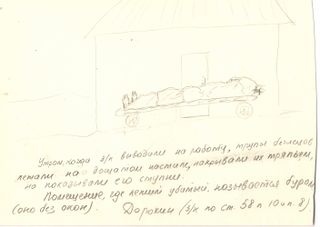 Утром, когда з/к выводили на работу, трупы беглецов
лежали на дощатом настиле, накрывали их тряпьем,
но показывали его ступни.
Помещение, где лежит убитый, называется буром
(оно без окон). Дорохин (з/к по ст. 58 п 10 и п. 8)